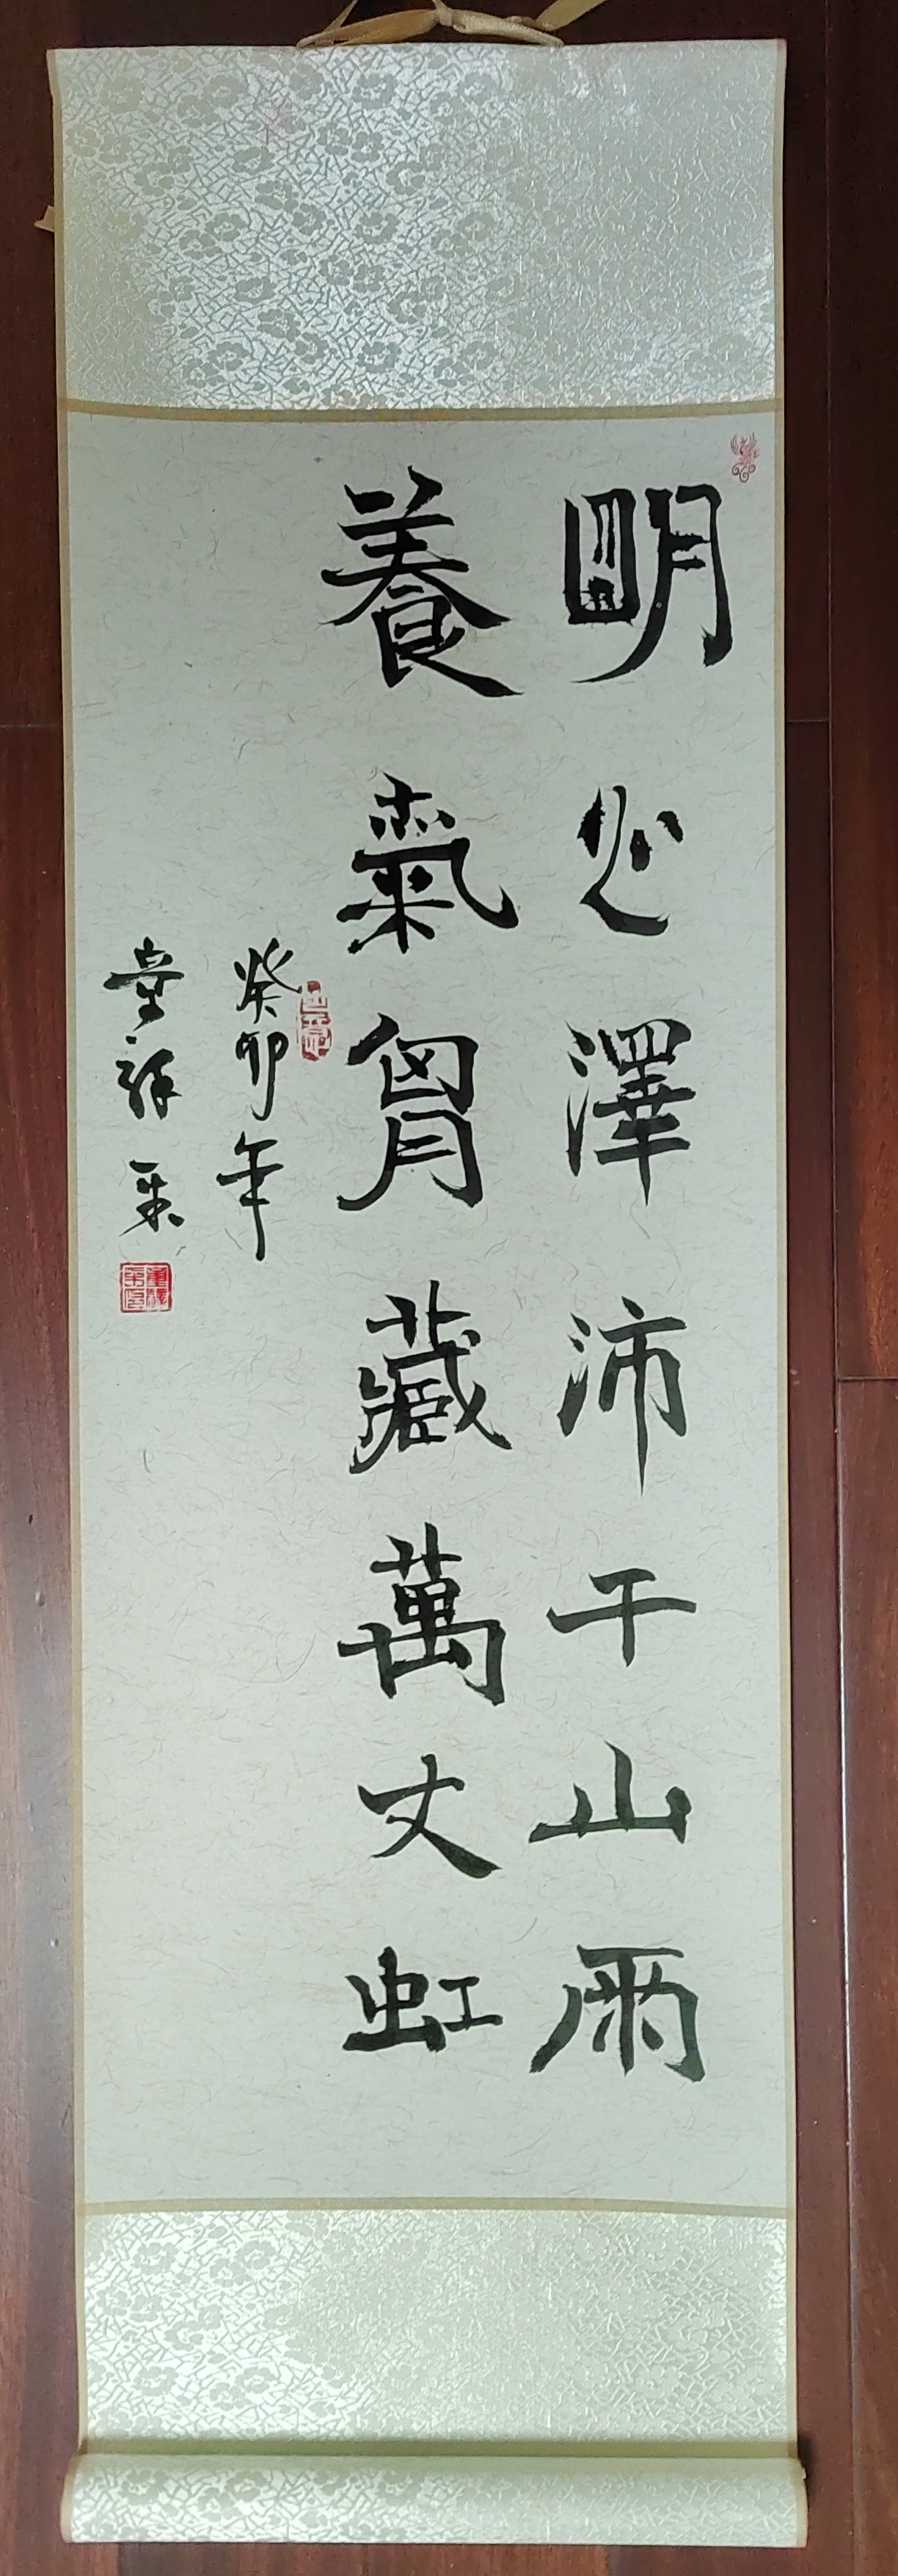 明心澤沛千山雨
養氣胷藏萬丈虹
癸卯年
童祥平